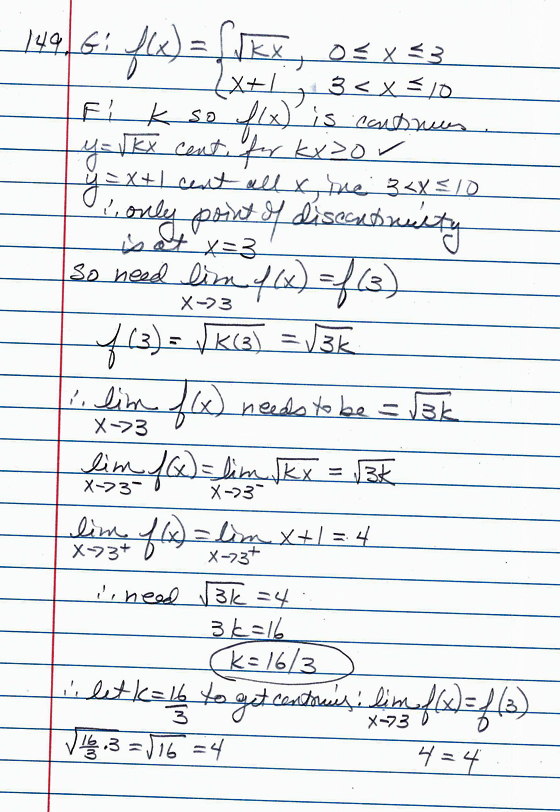 149. G: f(x) = { √kx , 0 ≤ x ≤ 3
x+1 , 3 < x ≤ 10
F: k so f(x) is continues.
y=√kx cont. for kx≥0 ✓
y=x+1 cont all x, inc 3<x≤10
∴ only point of discontinuity
is at x=3
So need lim f(x) = f(3)
x→3
f(3) = √k(3) = √3k
∴ lim f(x) needs to be = √3k
x→3
lim f(x) = lim √kx = √3k
x→3⁻ x→3⁻
lim f(x) = lim x+1 = 4
x→3⁺ x→3⁺
∴ need √3k = 4
3k=16
k=16/3
∴ let k=16/3 to get continuis: lim f(x) = f(3)
x→3
√16/3·3 = √16 = 4 4 = 4